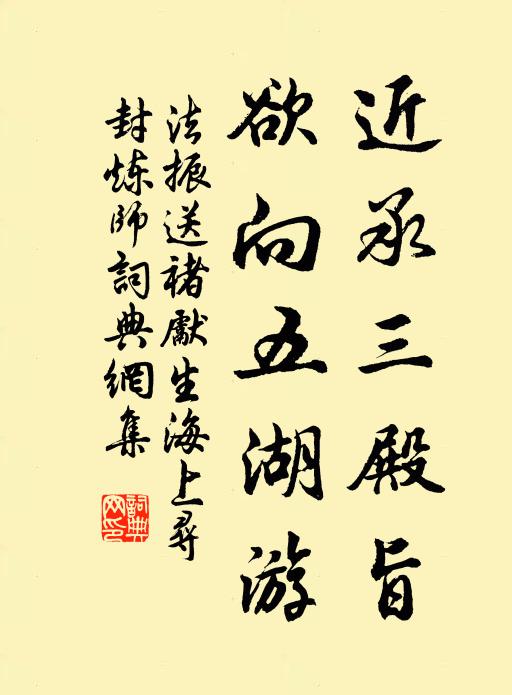 近承三殿旨
欲向五湖游
法振送褚獻生海上尋
封炼师詞典網集
詞典
网印